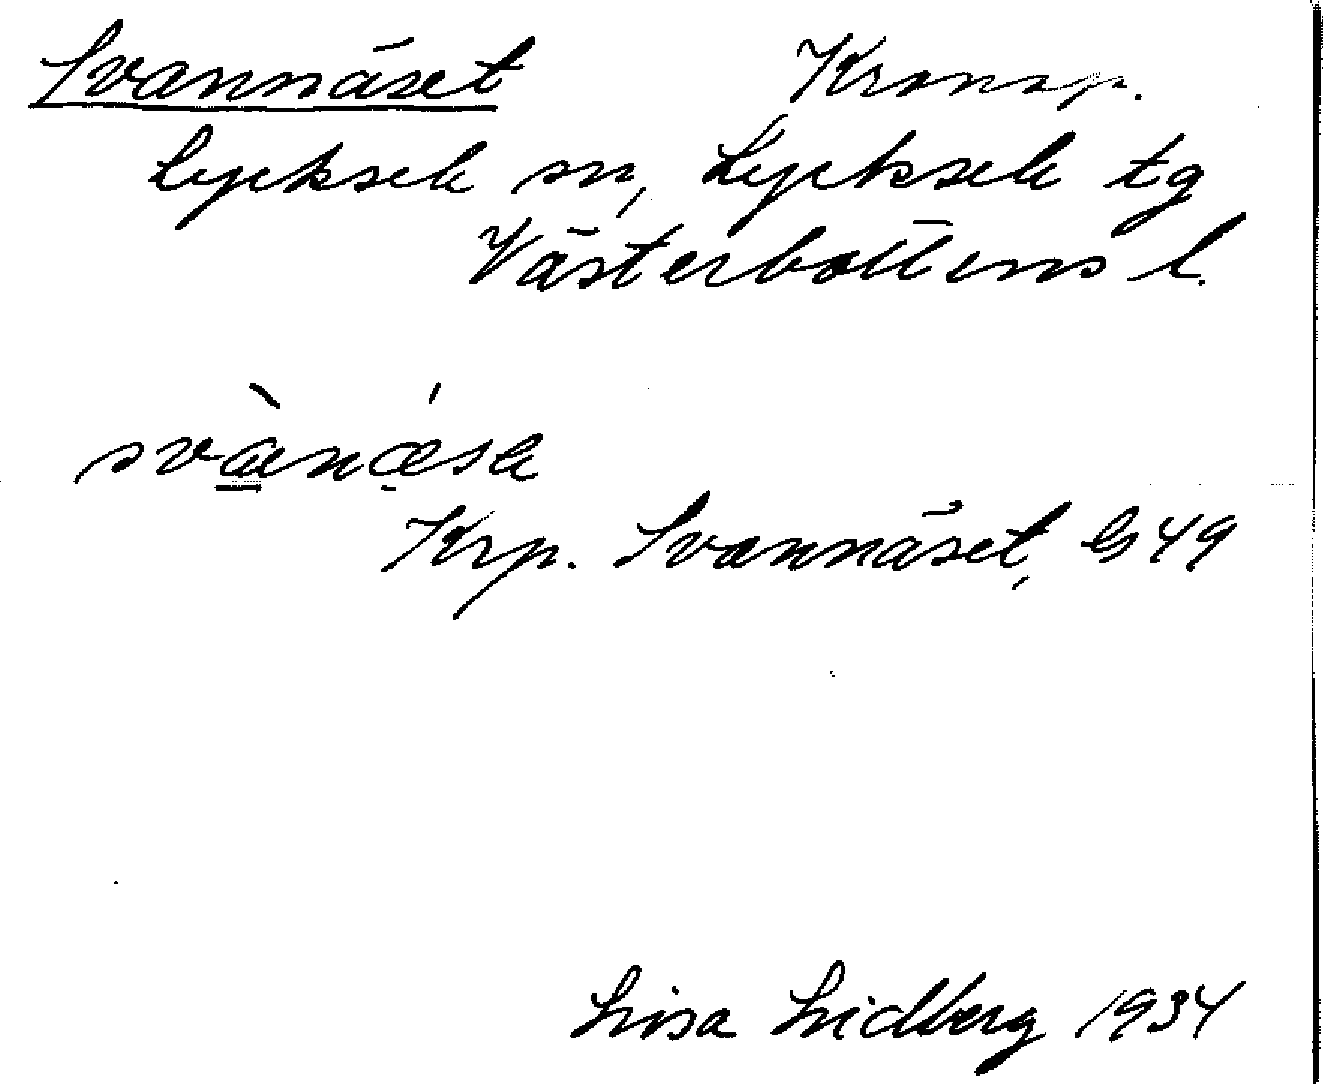 Svannäset Kronop.
Lycksele sn, Lycksele tg
Västerbottens l.
Krp. Svannäset, G 49
Lisa Lidberg 1934